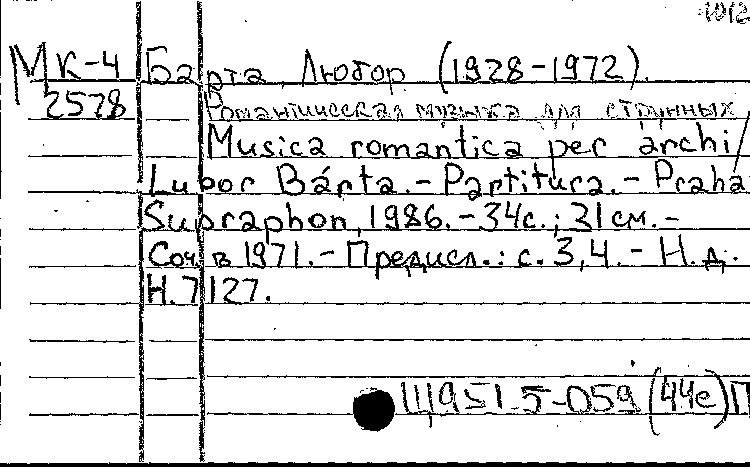 1012
МК-4 Барта, Любор (1928-1972).
2578 Романтическая музыка для струнных
Musica romantica per archi /
Lubor Bárta. - Partitura. - Praha
Supraphon, 1986. - 34с.; 31 см. -
Соч. в 1971. - Предисл.: с. 3,4. - Н.д.
H.7127.
Щ951.5-059(44е)П